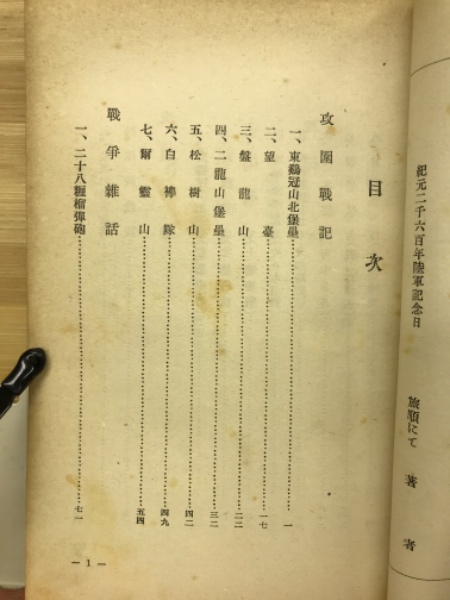 紀元二千六百年陸軍記念日
旅順にて 著者
目次
攻圍戰記
一、東鷄冠山北堡壘……一
二、望臺……一七
三、盤龍山……二二
四、二龍山堡壘……三二
五、松樹山……四二
六、白襷隊……四九
七、爾靈山……五四
戰爭雜話
一、二十八糎榴彈砲……七一
— 1 —